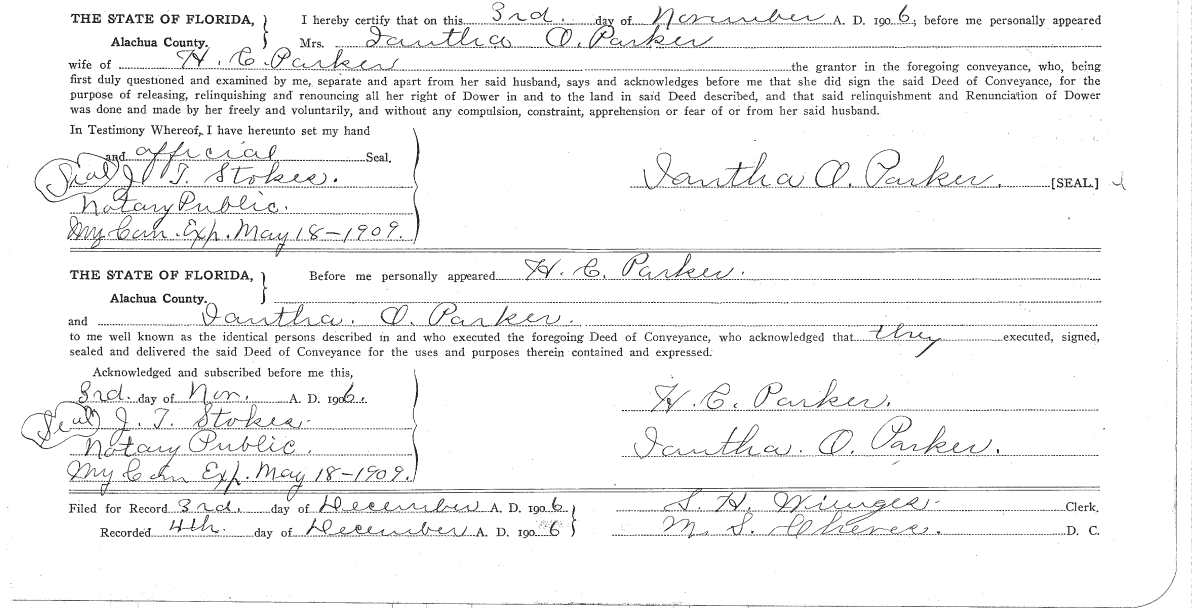 THE STATE OF FLORIDA, } I hereby certify that on this 3rd. day of November A. D. 1906; before me personally appeared
Alachua County. Mrs. Iantha O. Parker
wife of H. C. Parker the grantor in the foregoing conveyance, who, being
first duly questioned and examined by me, separate and apart from her said husband, says and acknowledges before me that she did sign the said Deed of Conveyance, for the
purpose of releasing, relinquishing and renouncing all her right of Dower in and to the land in said Deed described, and that said relinquishment and Renunciation of Dower
was done and made by her freely and voluntarily, and without any compulsion, constraint, apprehension or fear of or from her said husband.
In Testimony Whereof, I have hereunto set my hand
and official Seal.
(Seal) J. T. Stokes. Iantha O. Parker. [SEAL.]
Notary Public.
My Com. Exp. May 18-1909.
THE STATE OF FLORIDA, } Before me personally appeared H. C. Parker.
Alachua County.
and Iantha. O. Parker.
to me well known as the identical persons described in and who executed the foregoing Deed of Conveyance, who acknowledged that they executed, signed,
sealed and delivered the said Deed of Conveyance for the uses and purposes therein contained and expressed.
Acknowledged and subscribed before me this,
3rd. day of Nov. A. D. 1906. H. C. Parker.
(Seal) J. T. Stokes.
Notary Public. Iantha. O. Parker.
My Com Exp. May 18-1909.
Filed for Record 3rd. day of December A. D. 1906. S. H. Wienges. Clerk.
Recorded 4th. day of December A. D. 1906 M. S. Cheves. D. C.